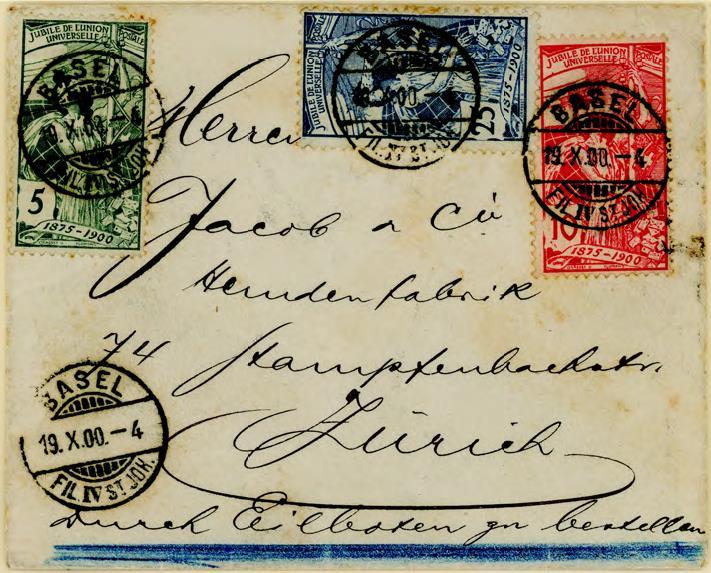 JUBILÉ DE L'UNION
POSTALE
UNIVERSELLE
BASEL
19.X.00.-4
FIL.IV ST.JOH.
5
1875-1900
JUBILÉ DE L'UNION
UNIVERSELLE
BASEL
X.00.-4
FIL.IV ST.JOH.
25
1875-1900
JUBILÉ DE L'UNION
POSTALE
UNIVERSELLE
BASEL
19.X.00.-4
FIL.IV ST.JOH.
10
1875-1900
Herren
Jacob & Cie
Hemdenfabrik
74 Stampfenbachstr.
Zürich
BASEL
19.X.00.-4
FIL.IV ST.JOH.
Durch Eilboten zu bestellen